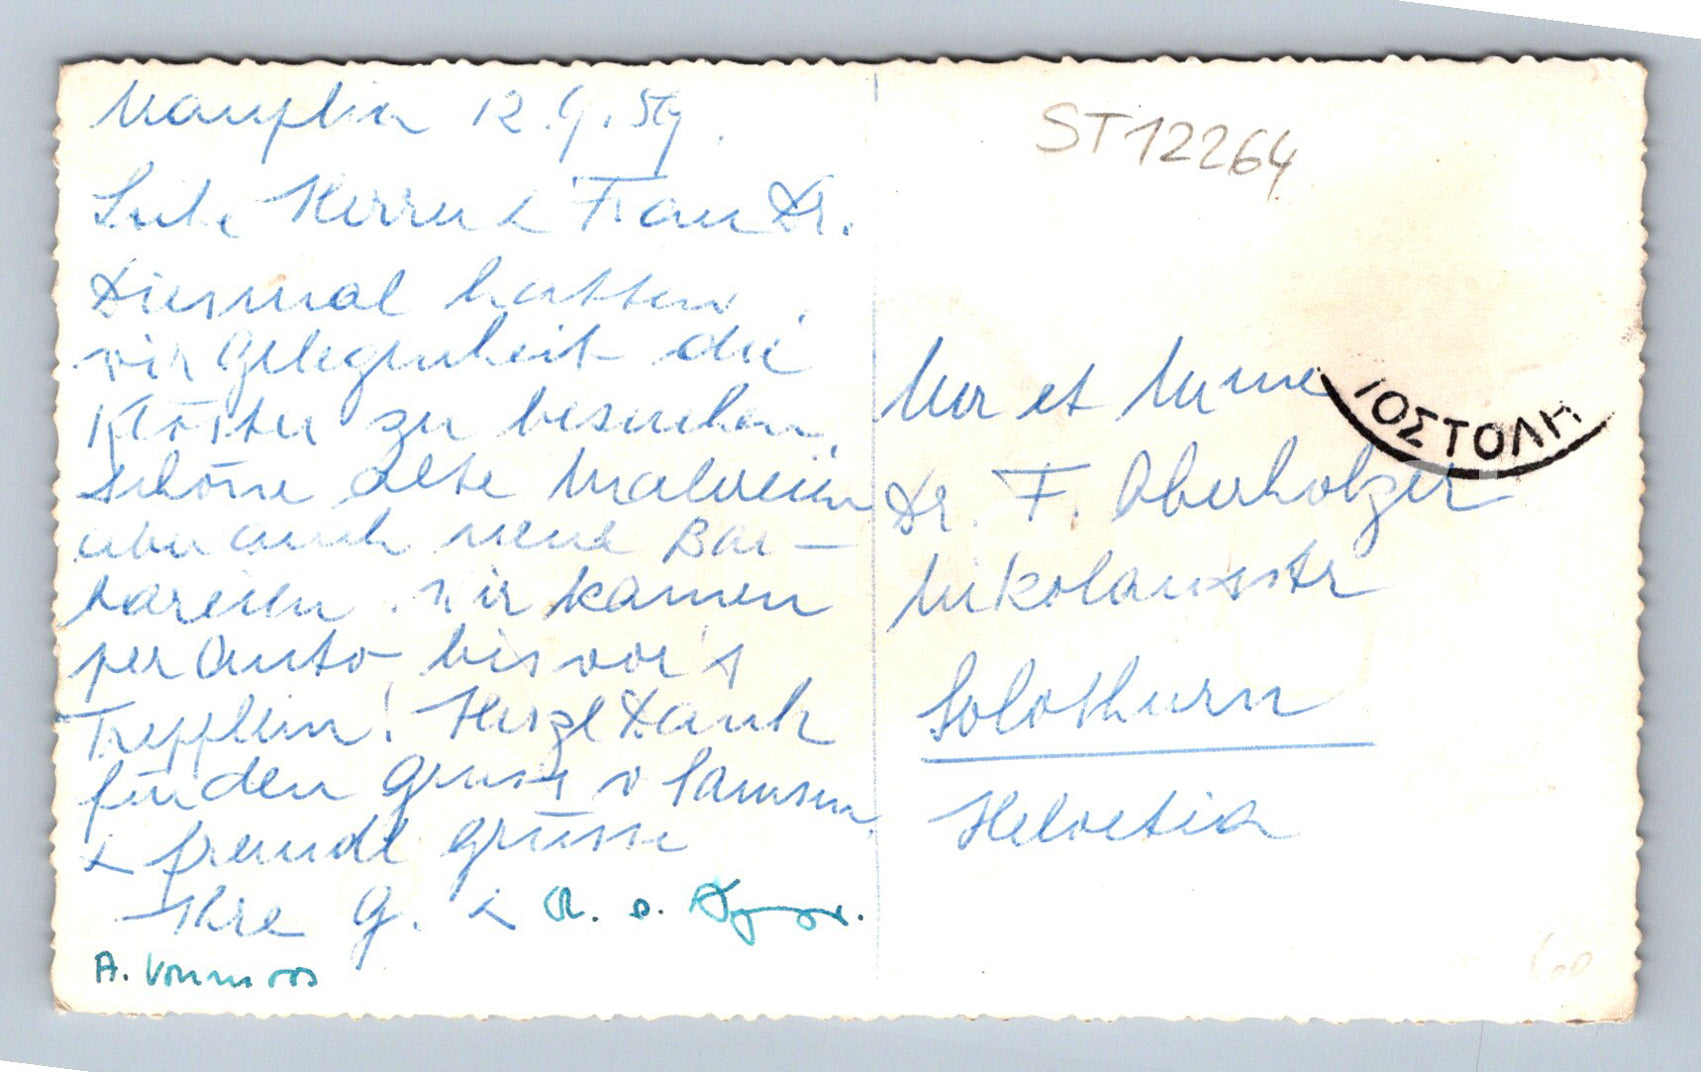 Nauplia 12.9.59.
Liebe Herrn & Frau Dr.
Diesmal hatten
wir Gelegenheit die
Klöster zu besuchen,
schöne alte Malereien
aber auch neue Bar-
bareien. Wir kamen
per Auto bis vor's
Trepplein! Herzl Dank
für den Gruss v
& freundl Grüsse
Ihre G. & R. v.
A. Vonmoos
ST12264
ΙΟΣΤΟΛΗ
Mr et Mme
Dr. F. Oberholzer
Nikolausstr
Solothurn
Helvetia
60